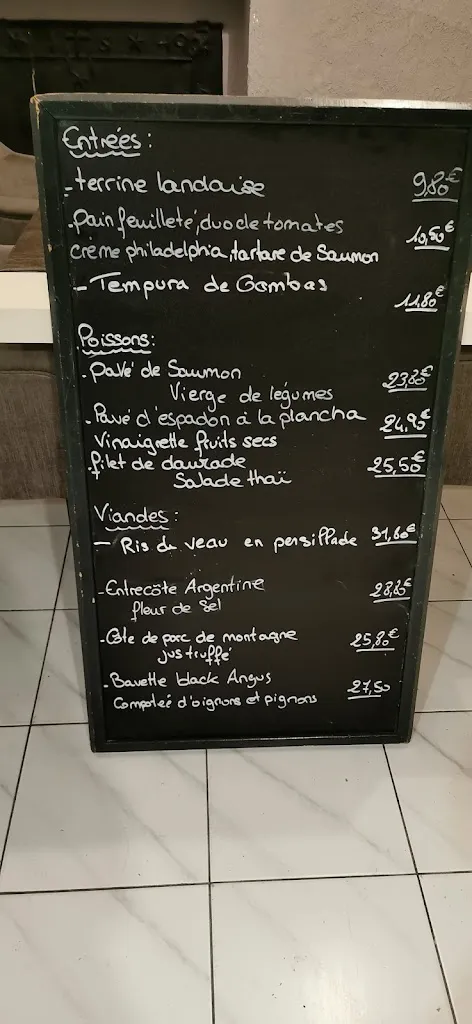 Entrées :
- terrine landaise 9,80€
- pain feuilleté, duo de tomates
crème philadelphia, tartare de Saumon 10,50€
- Tempura de Gambas 11,80€
Poissons :
- pavé de Saumon 23,80€
Vierge de légumes
- Pavé d'espadon à la plancha 24,90€
Vinaigrette fruits secs
- filet de daurade 25,50€
Salade thaï
Viandes :
- Ris de veau en persillade 31,60€
- Entrecôte Argentine 28,80€
fleur de Sel
- Côte de porc de montagne 25,80€
jus truffé
- Bavette black Angus 27,50
Compoteé d'oignons et pignons